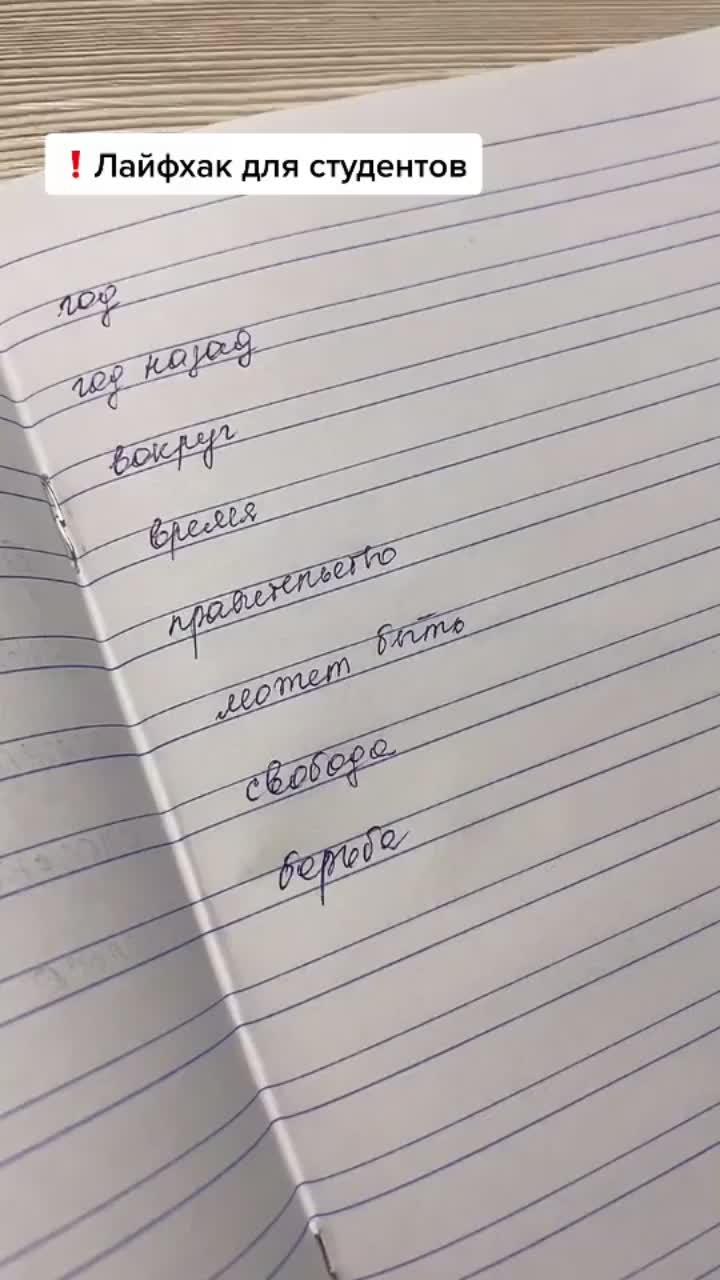 ❗Лайфхак для студентов
год
год назад
вокруг
время
правительство
может быть
свобода
борьба